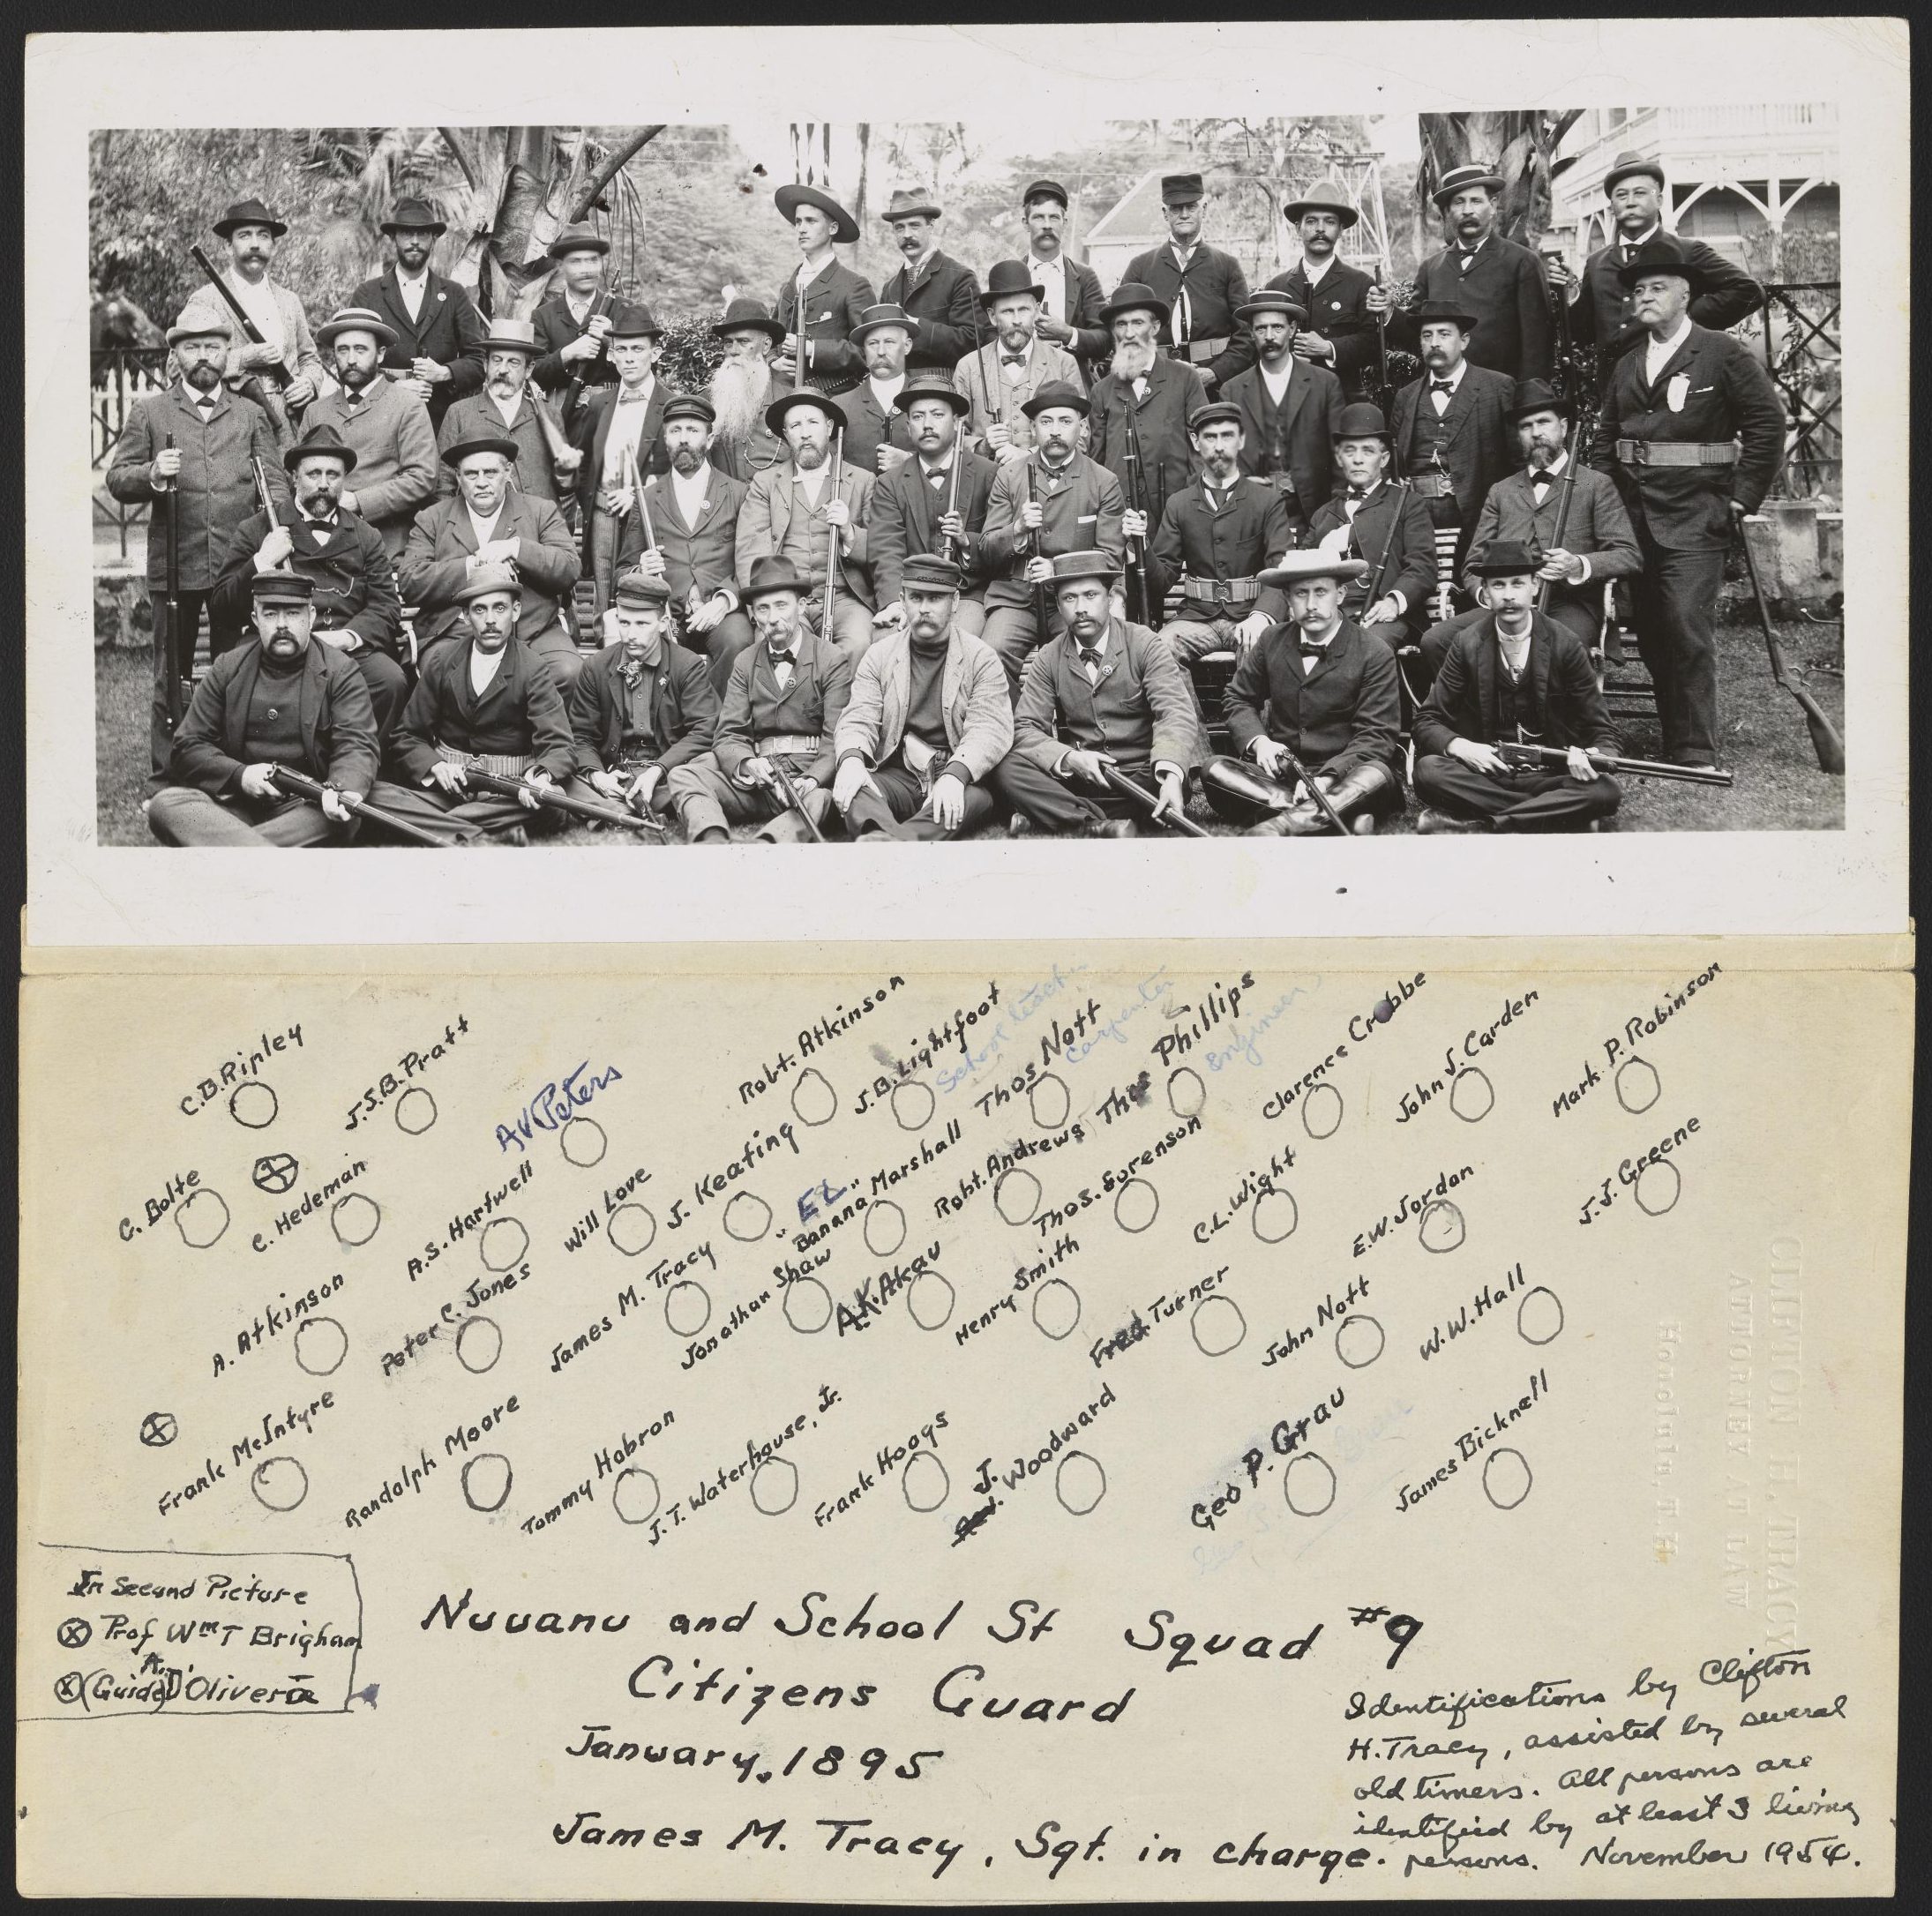 C.B. Ripley
J.S.B. Pratt
AV Peters
Robt. Atkinson
J.B. Lightfoot
School teacher
Thos Nott
Carpenter
Thos Phillips
Engineer
Clarence Crabbe
John J. Carden
Mark P. Robinson
C. Bolte
C. Hedeman
A.S. Hartwell
Will Love
J. Keating
" EL "
Banana Marshall
Robt. Andrews
Thos. Sorenson
C.L. Wight
E.W. Jordan
J.J. Greene
A. Atkinson
Peter C. Jones
James M. Tracy
Jonathan Shaw
A.K. Akau
Henry Smith
Fred Turner
John Nott
W.W. Hall
Frank McIntyre
Randolph Moore
Tommy Hobron
J.T. Waterhouse, Jr.
Frank Hoogs
J. Woodward
Geo P. Grau
James Bicknell
In Second Picture
Prof Wm T Brigham
(Guide) A. D'Olivera
Nuuanu and School St Squad #9
Citizens Guard
January, 1895
James M. Tracy, Sgt. in charge.
Identifications by Clifton
H. Tracy, assisted by several
old timers. All persons are
identified by at least 3 living
persons. November 1954.
CLIFTON H. TRACY
ATTORNEY AT LAW
Honolulu T.H.